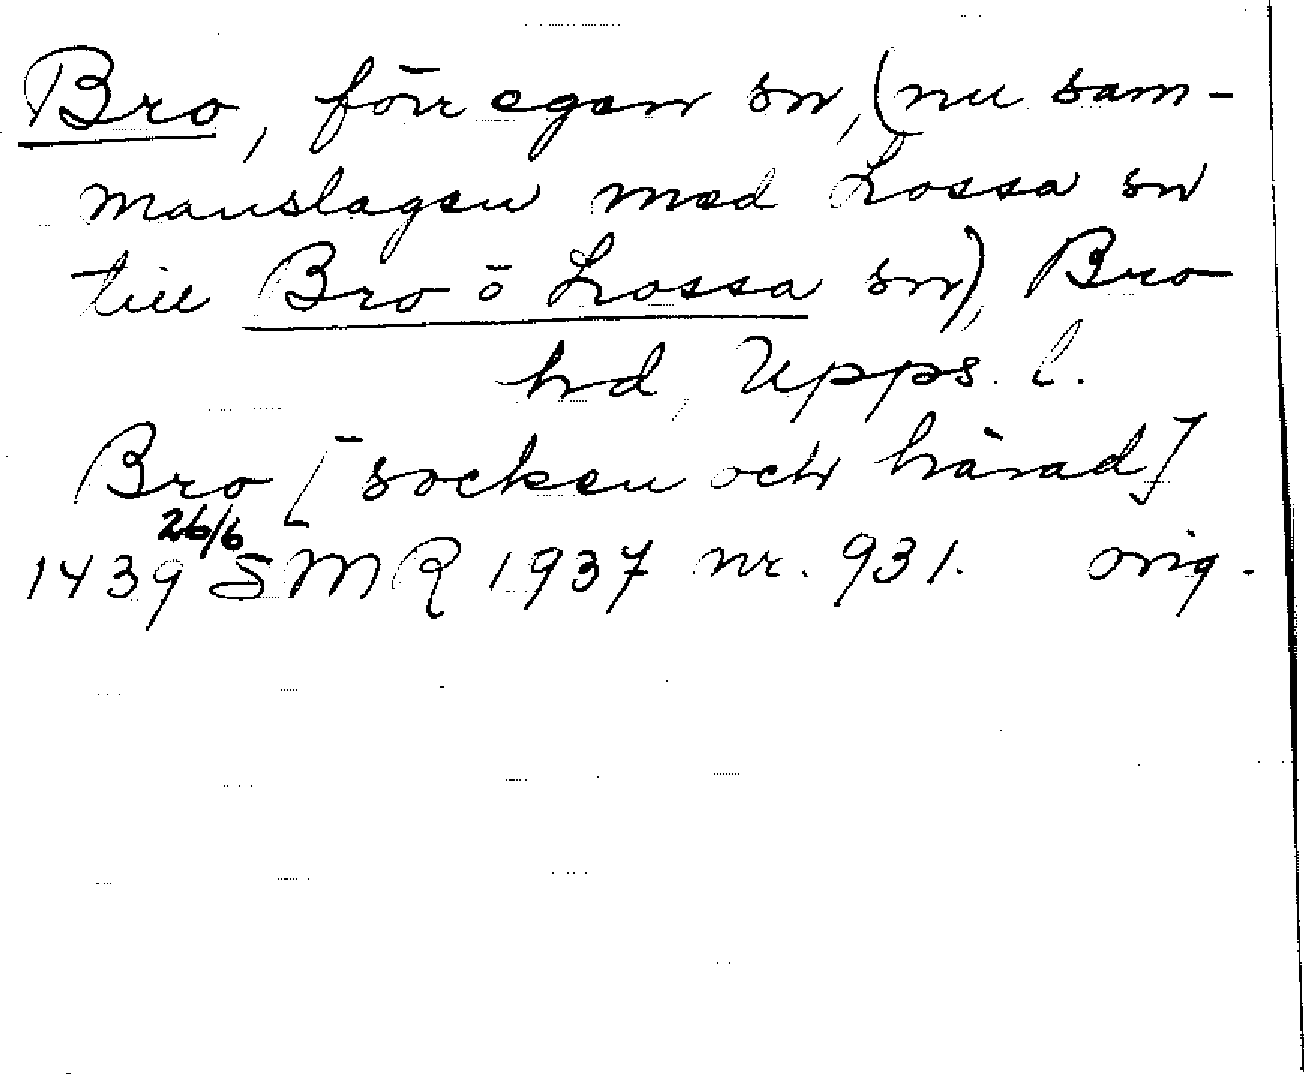 Bro, förr egen sn, (nu sam-
manslagen med Lossa sn
till Bro o Lossa sn), Bro
hd, Upps. l.
Bro [socken och härad]
26/6
1439 SMR 1937 nr. 931. orig.